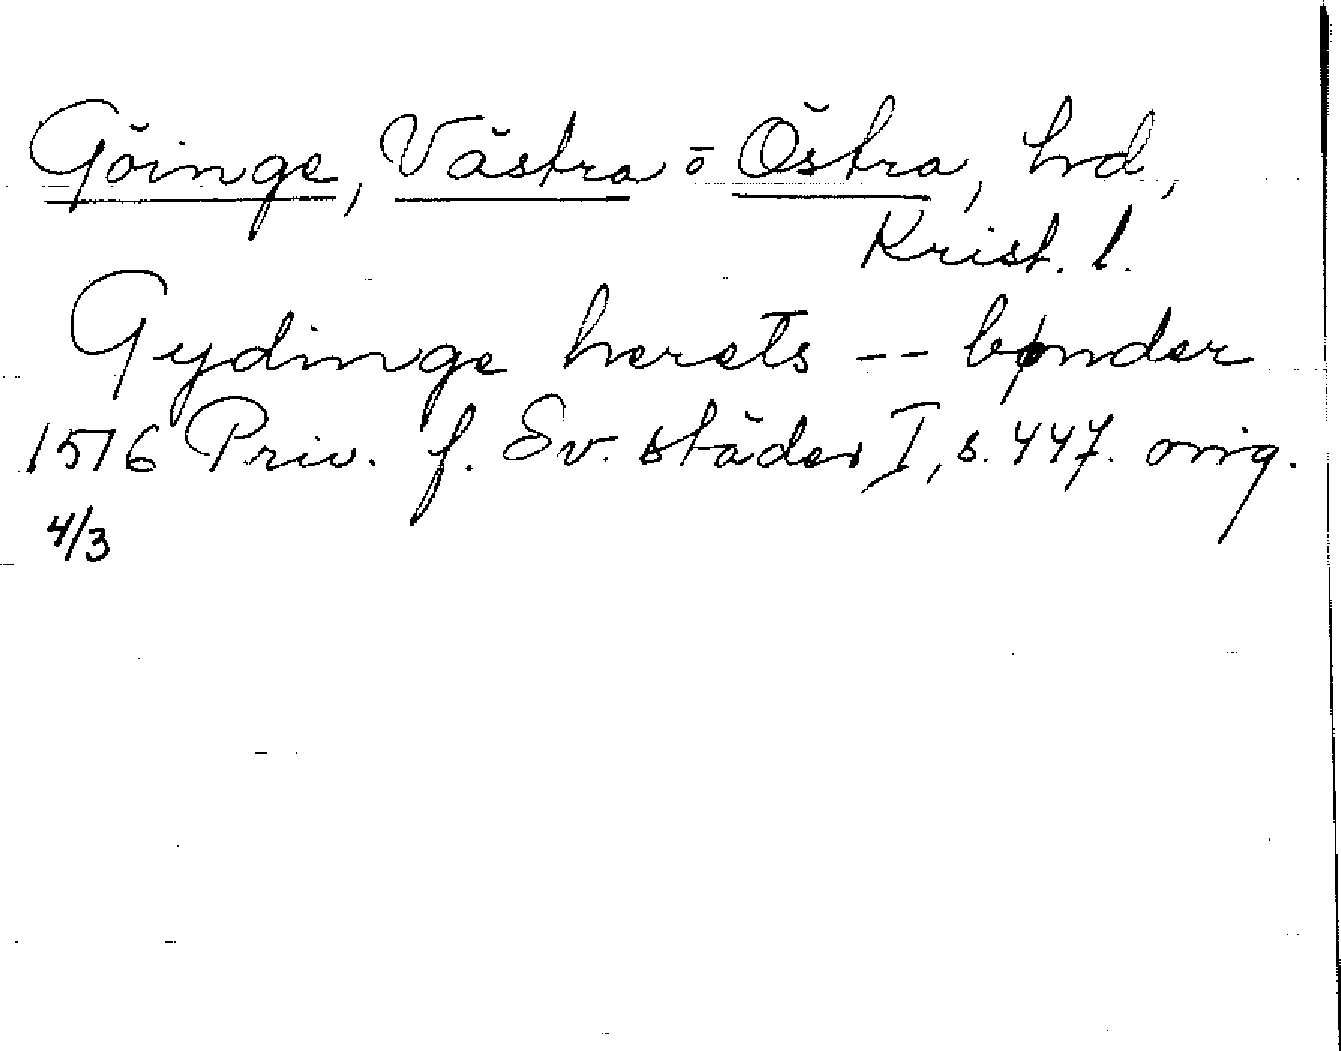 Göinge, Västra o Östra, hrd,
Krist. l.
Gydinge herets -- bønder
1516 Priv. f. Sv. städer I, s. 447. orig.
4/3